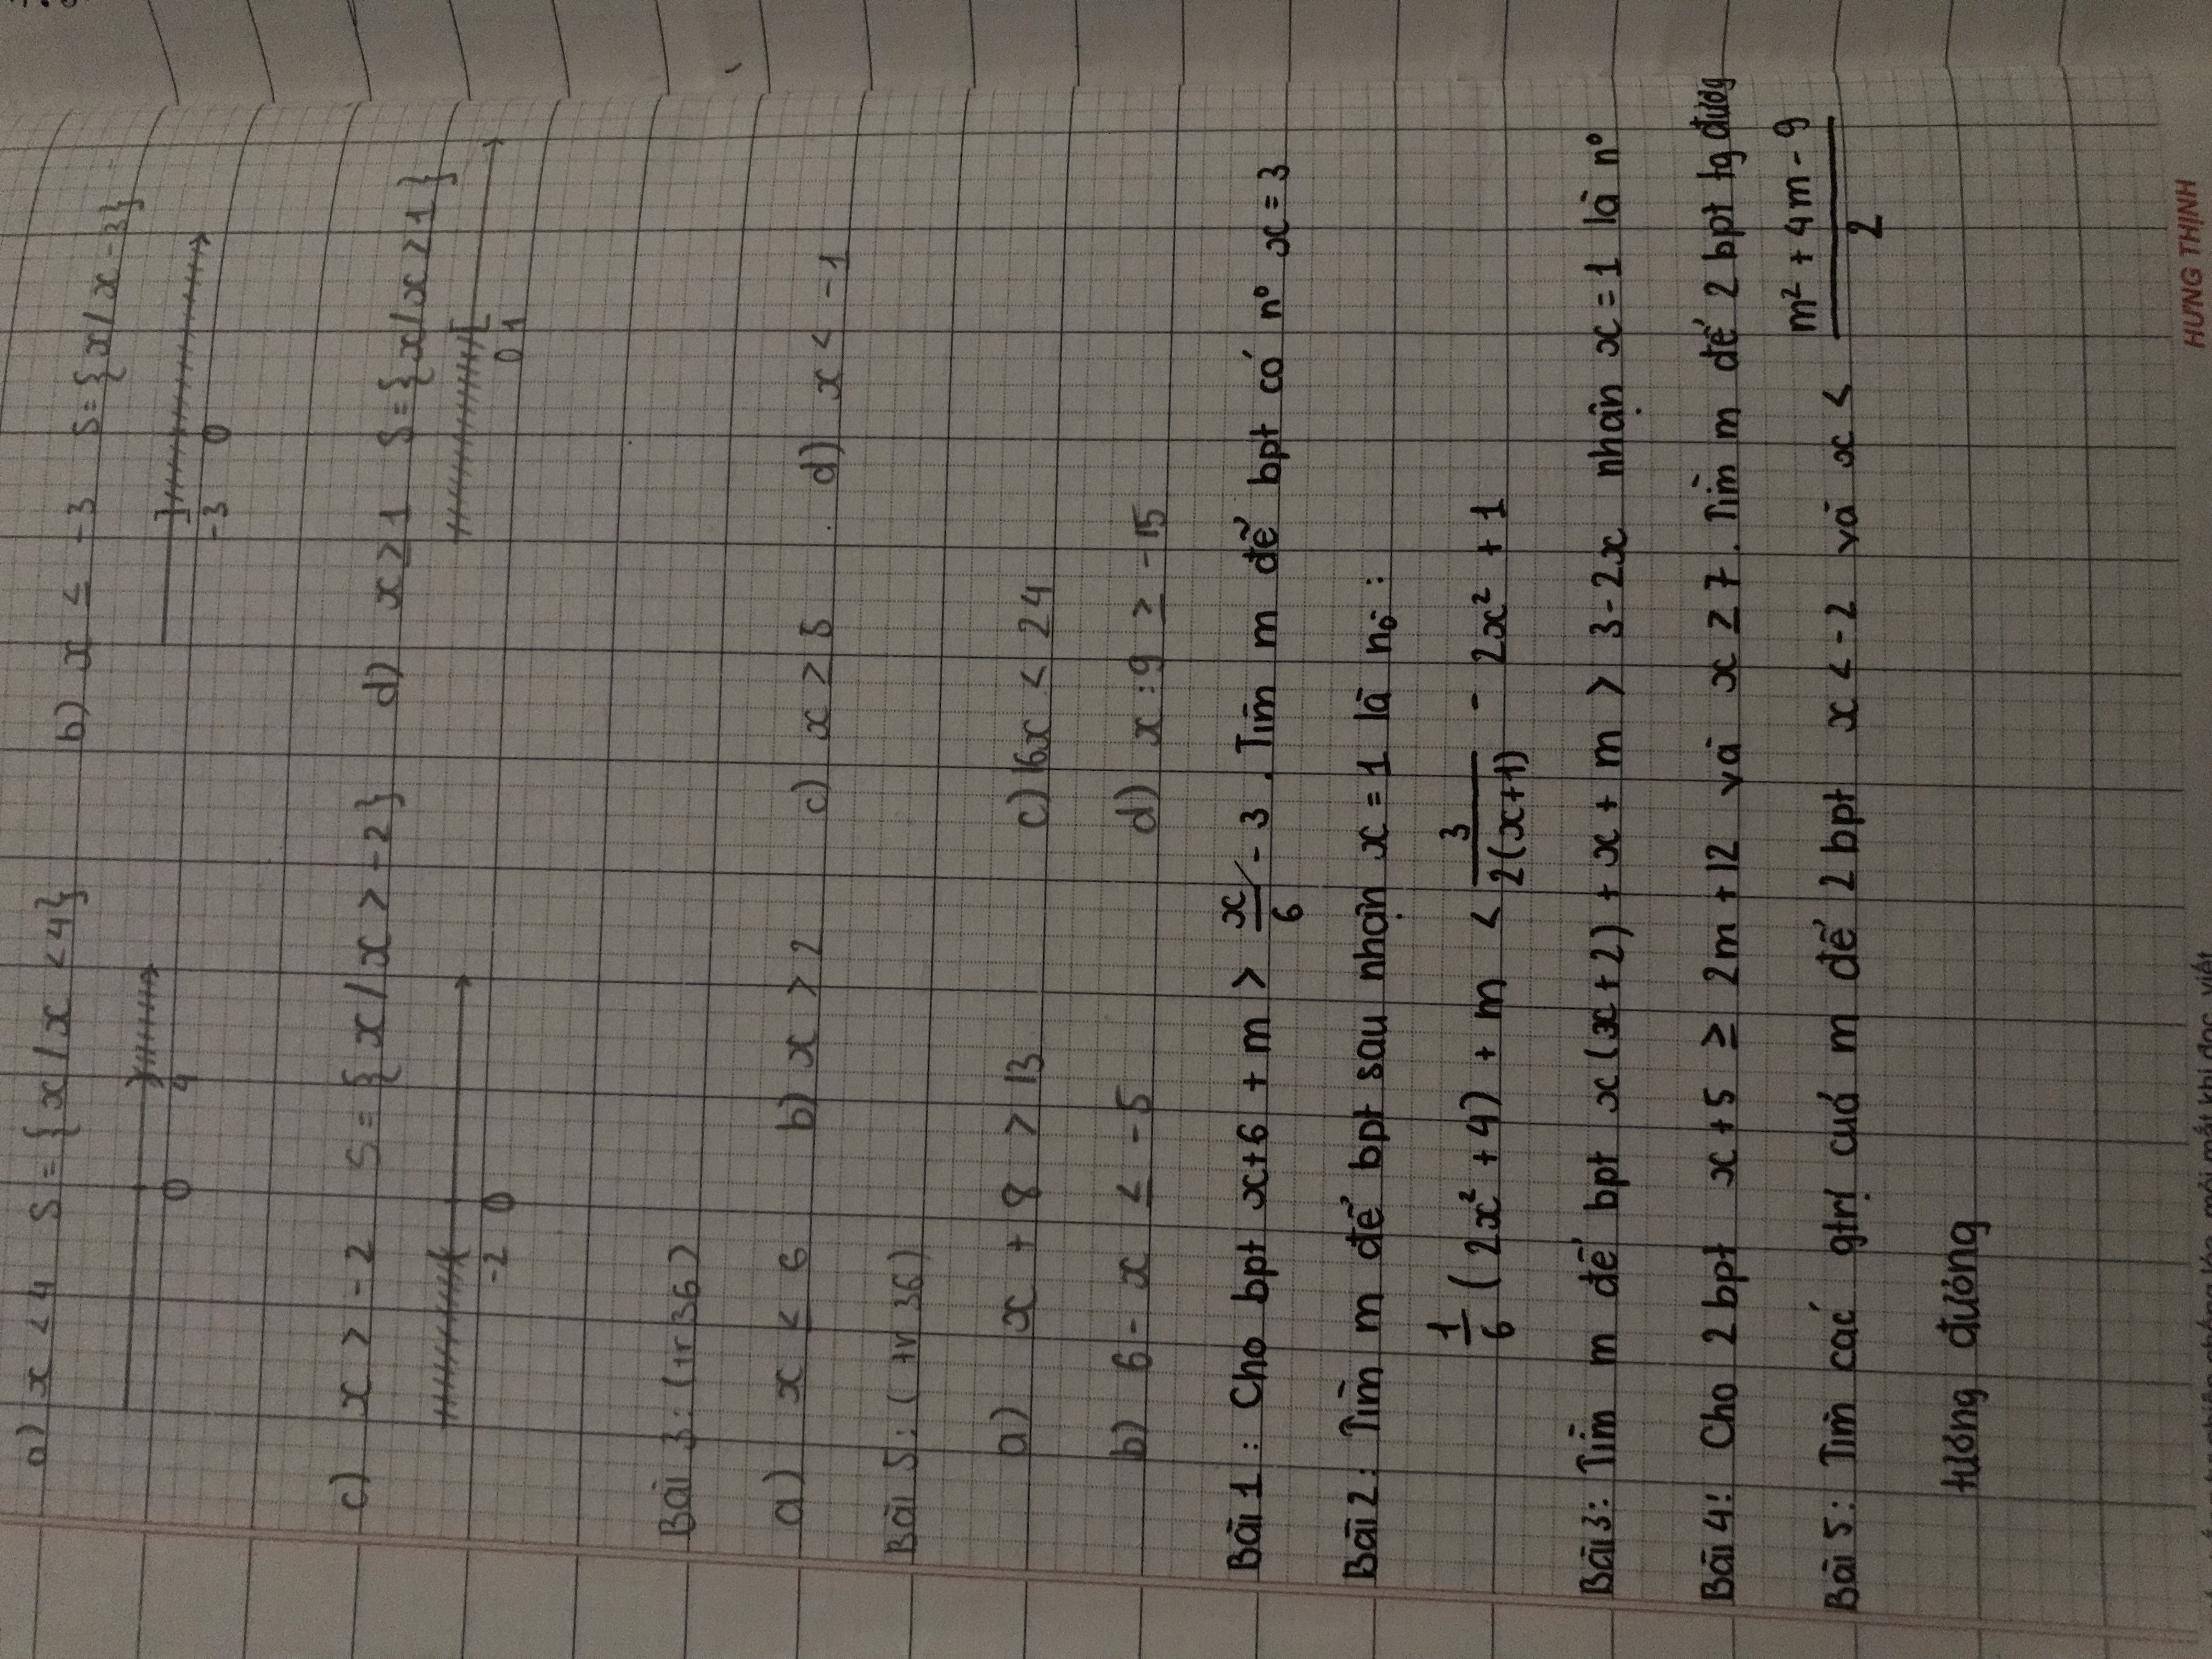 a) x < 4 S = {x / x < 4} b) x ≤ -3 S = {x / x -3}
0 4 -3 0
c) x > -2 S = {x / x > -2} d) x ≥ 1 S = {x / x ≥ 1}
-2 0 0 1
Bài 3: (tr 36)
a) x ≤ 6 b) x > 2 c) x ≥ 5 d) x < -1
Bài 5: (tr 36)
a) x + 8 > 13 c) 16x < 24
b) 6 - x ≤ -5 d) x : 9 ≥ -15
Bài 1: Cho bpt x+6 + m > x/6 - 3. Tìm m để bpt có nº x = 3
Bài 2: Tìm m để bpt sau nhận x = 1 là nº:
1/6 (2x² + 4) + m < 3/2(x+1) - 2x² + 1
Bài 3: Tìm m để bpt x(x+2) + x + m > 3-2x nhận x = 1 là nº
Bài 4: Cho 2 bpt x + 5 ≥ 2m + 12 và x ≥ 7. Tìm m để 2 bpt tg đương
Bài 5: Tìm các gtrị của m để 2 bpt x < -2 và x < m² + 4m - 9 / 2
tương đương
HƯNG THỊNH